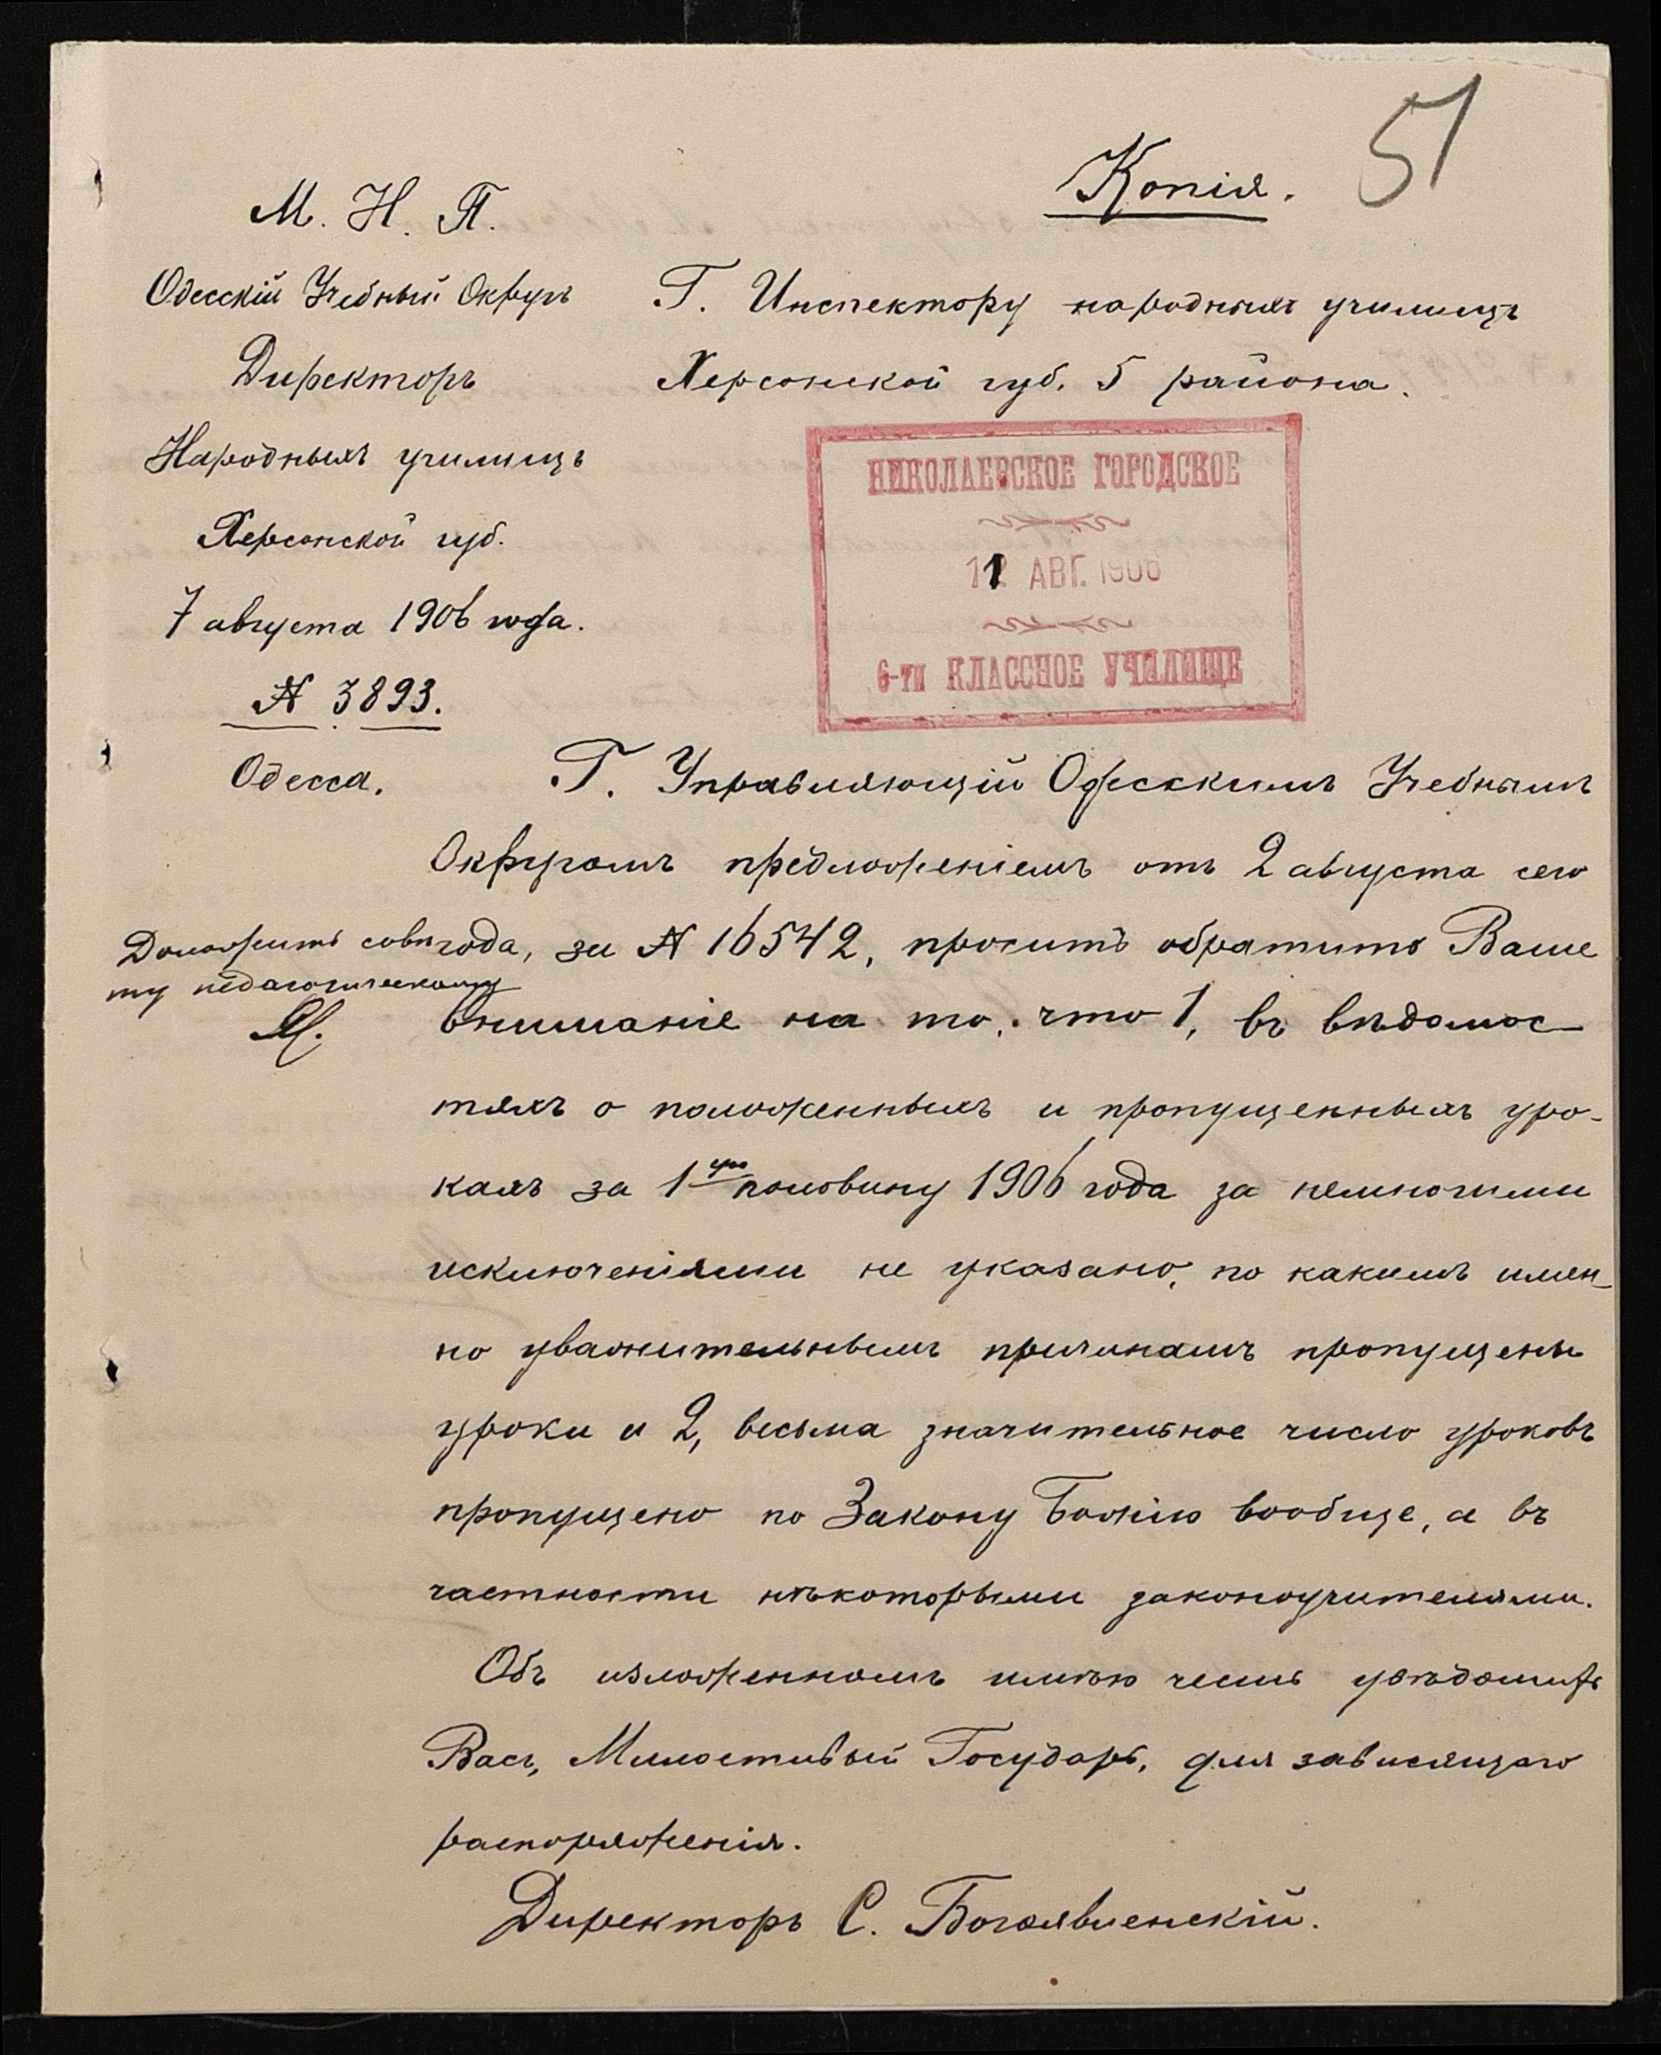 51
Копія.
М. Н. П.
Одесскій Учебный Округъ
Директоръ
Народныхъ училищъ
Херсонской губ.
7 августа 1906 года.
№ 3893.
Одесса.
Г. Инспектору народныхъ училищъ
Херсонской губ. 5 района.
НИКОЛАЕВСКОЕ ГОРОДСКОЕ
АВГ. 1906
6-ТИ КЛАССНОЕ УЧИЛИЩЕ
Г. Управляющій Одесскимъ Учебнымъ
Округомъ предложеніемъ отъ 2 августа сего
года, за № 16542, проситъ обратить Ваше
вниманіе на то, что 1, въ вѣдомос-
тяхъ о положенныхъ и пропущенныхъ уро-
кахъ за 1ую половину 1906 года за немногими
исключеніями не указано, по какимъ имен-
но уважительнымъ причинамъ пропущены
уроки и 2, весьма значительное число уроковъ
пропущено по Закону Божію вообще, а въ
частности нѣкоторыми законоучителями.
Объ изложенномъ имѣю честь увѣдомить
Васъ, Милостивый Государь, для зависящаго
распоряженія.
Директоръ С. Богоявленскій.
Доложить совѣ
ту педагогическому